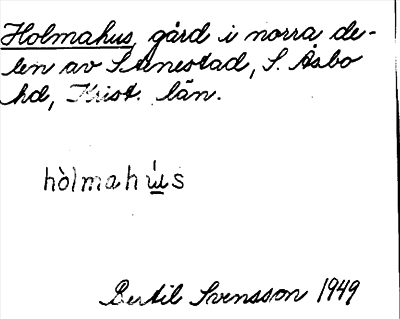 Holmahus, gård i norra de-
len av Stenestad, S. Åsbo
hd, Krist. län.
hòlmahú̲s
Bertil Svensson 1949